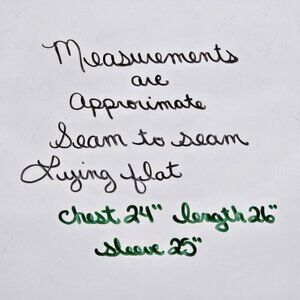 Measurements
are
Approximate
Seam to seam
Lying flat
Chest 24" length 26"
sleeve 25"